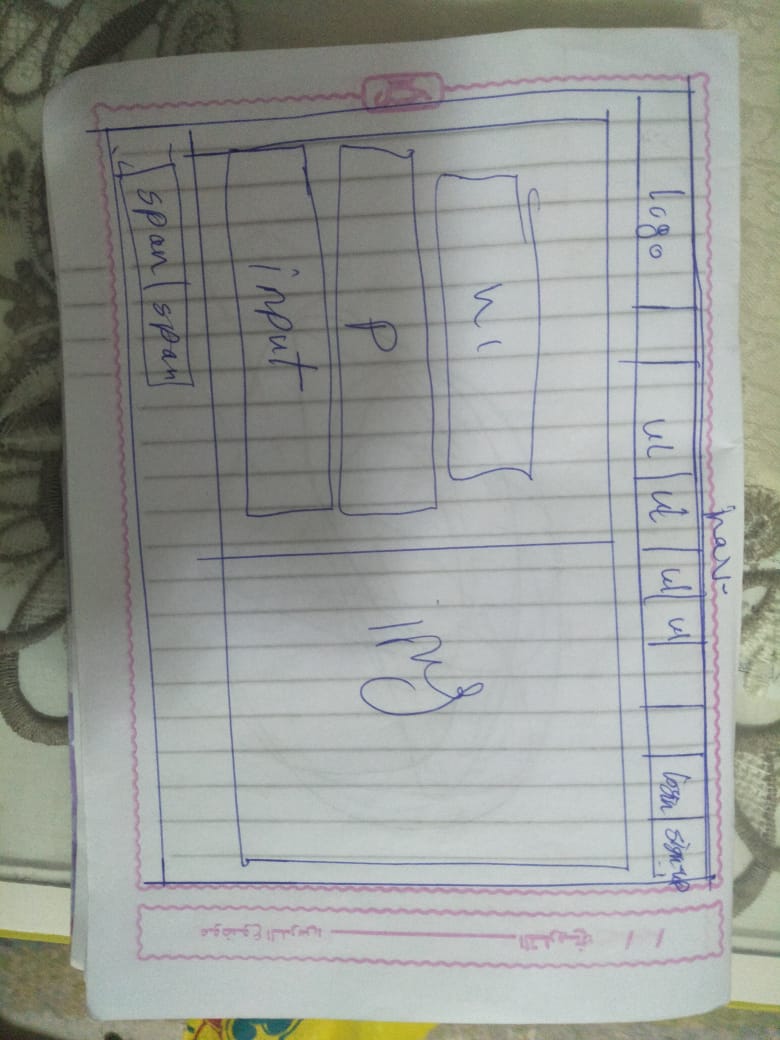 nav
logo ul ul ul ul login sign-up
h1
p
input
img
span span
التاريخ / / موضوع الدرس